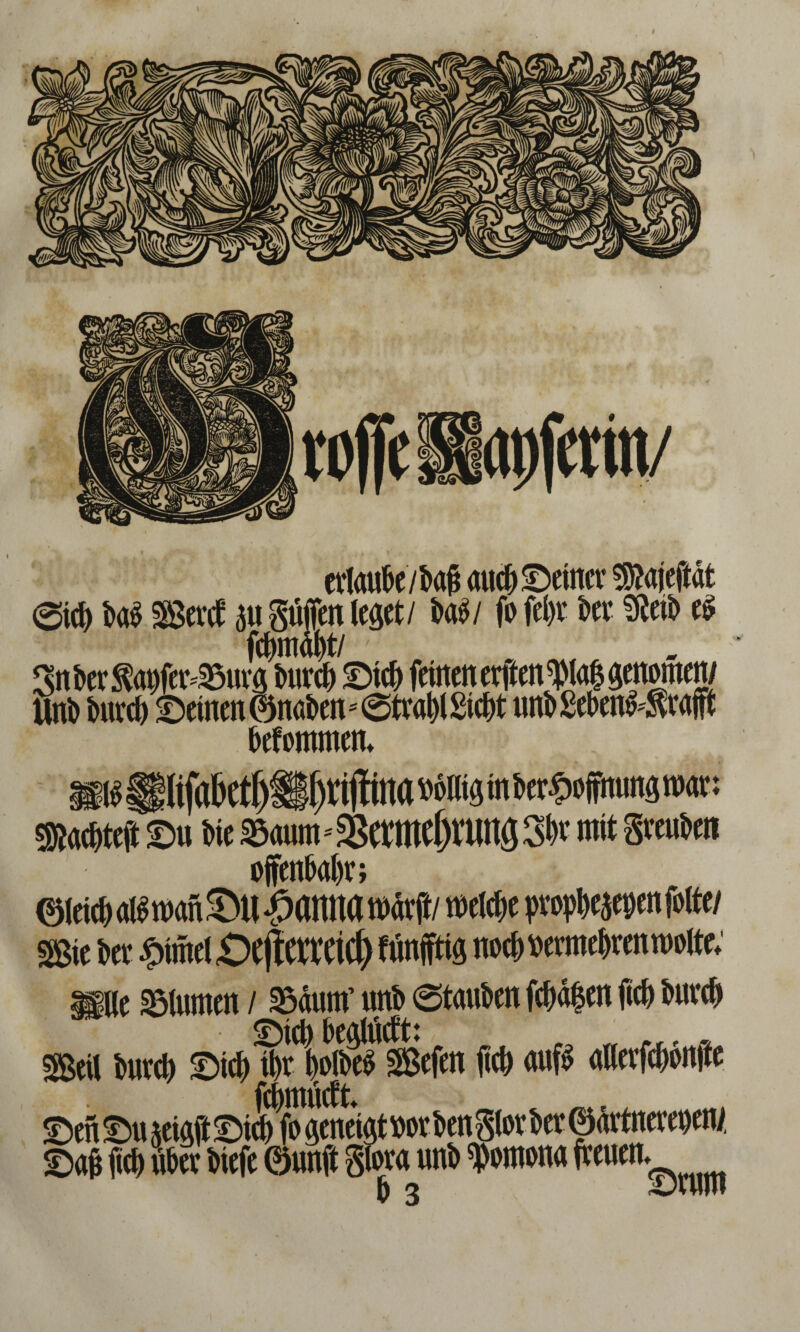 Grosse Kayserin/
erlaube/daß auch Deiner Majestät
Sich das Werck zu Füssen leget/ das/ so sehr der Neid es
schmäht/
In der Kayser-Burg durch Dich seinen ersten Platz genom̃en/
Und durch Deinen Gnaden-Strahl Licht und Lebens-Krafft
bekommen.
Als Elisabeth Christina völlig in der Hoffnung war:
Machtest Du die Baum-Vermehrung Ihr mit Freuden
offenbahr;
Gleich als wañ Du Hanna wärst/ welche prophezeyen solte/
Wie der Him̃el Oesterreich künfftig noch vermehren wolte.
Alle Blumen / Bäum' und Stauden schätzen sich durch
Dich beglückt:
Weil durch Dich ihr holdes Wesen sich aufs allerschönste
schmückt.
Deñ Du zeigst Dich so geneigt vor den Flor der Gärtnereyen/
Daß sich über diese Gunst Flora und Pomona freuen.
b 3 Drum